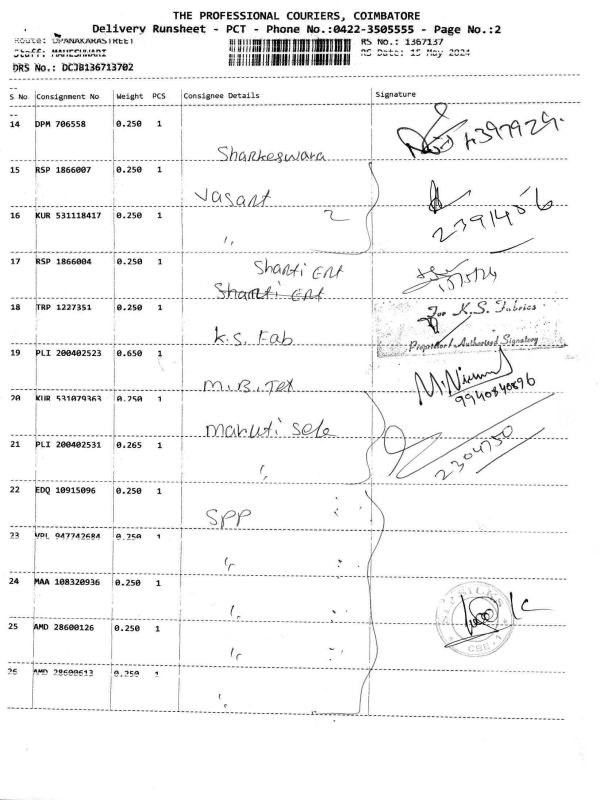 THE PROFESSIONAL COURIERS, COIMBATORE
Delivery Runsheet - PCT - Phone No.:0422-3505555 - Page No.:2
Route: UPANAKARASTREET RS No.: 1367137
Staff: MAHESHWARI RS Date: 15 May 2024
DRS No.: DCJB136713702
S No Consignment No Weight PCS Consignee Details Signature
14 DPM 706558 0.250 1 Sharkeswara
15 RSP 1866007 0.250 1 Vasant
16 KUR 531118417 0.250 1 2 2391456
17 RSP 1866004 0.250 1 Shanti Ent
Shanti Ent
18 TRP 1227351 0.250 1 K.S. Fab For K.S. Fabrics
Proprietor / Authorised Signatory
19 PLI 200402523 0.650 1 M.B. Tex
9940840896
20 KUR 531079363 0.250 1 Maruti Sele
21 PLI 200402531 0.265 1 2304750
22 EDQ 10915096 0.250 1 SPP
23 VPL 947742684 0.250 1
24 MAA 108320936 0.250 1
25 AMD 28600126 0.250 1
CBE-1
26 AMD 28600613 0.250 1